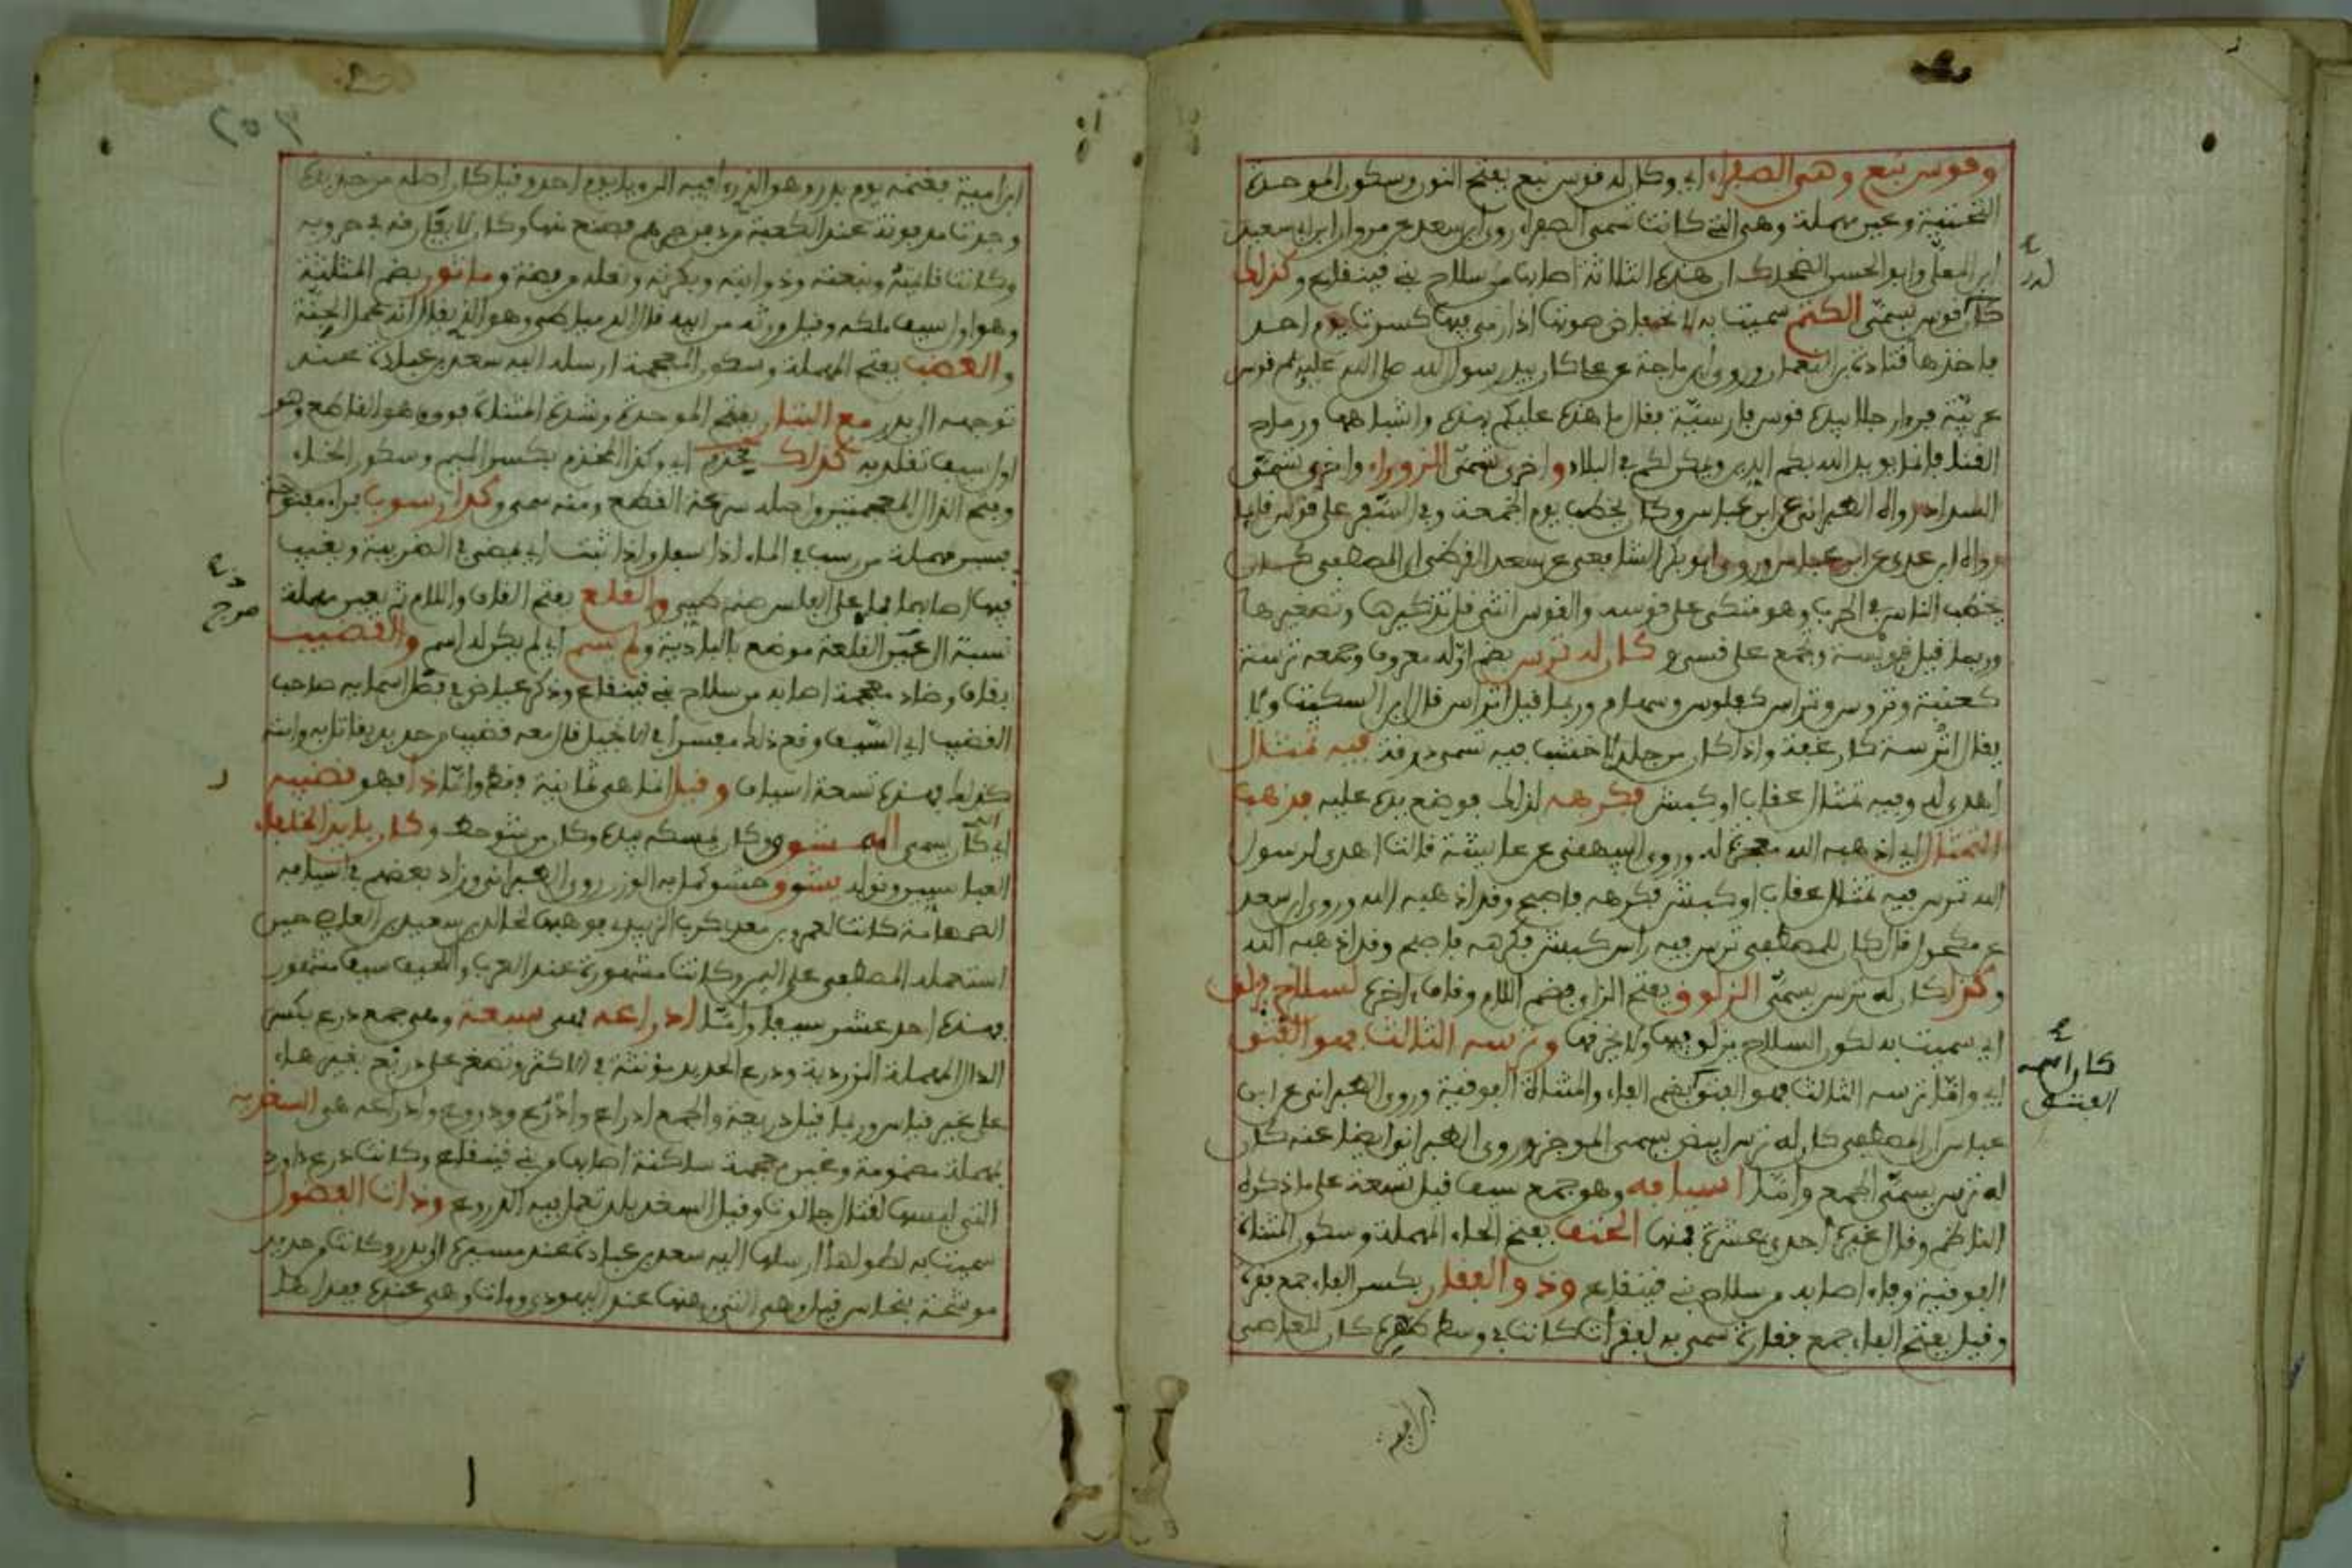 وقوس نبع وهي الصفراء اي وكان له قوس نبع بفتح النون وسكون الموحدة
التحتية وعين مهملة وهي التي كانت تسمى الصفراء روى ابن سعد عن مروان ابن ابي سعيد
ابن المعلى وابو الحسن الضحاك ان هذه الثلاثة اصابها من سلاح بني قينقاع وكذلك
كان قوس يسمى الكتم سميت به لانخفاض صوتها اذا رمي فيها كسرت يوم احد
فاخذها قتادة بن النعمان وروى ابن ماجة عن علي كان بيد رسول الله صلى الله عليه وسلم قوس
عربية فرءا رجلا بيده قوس فارسية فقال ما هذه عليكم بهذه واشباهها ورماح
القنا فانما يويد الله بكم الدين ويمكن لكم في البلاد واخرى تسمى الزوراء واخرى تسمى
السداد رواه الطبراني عن ابن عباس وكان يخطب يوم الجمعة وفي السفر على قوس قايما
رواه ابن عدي عن ابن عباس وروى ابو بكر الشافعي عن سعد القرظي ان المصطفى كان
يخطب الناس في الحرب وهو متكئ على قوسه والقوس انثى فلا تذكيرها وتصغيرها
وربما قيل قويسة وتجمع على قسي كان له ترس بضم اوله معروف وجمعه ترسة
كعنبة وتروس وتراس كفلوس وسهام وربما قيل اتراس قال ابن السكيت ولا
يقال اترسة كارغفة واذا كان من جلد لا خشب فيه تسمى درقة فيه تمثال
اهدي له وفيه تمثال عقاب او كبش فكرهه لذلك فوضع يده عليه فذهب
التمثال اي اذهبه الله معجزة له وروى البيهقي عن عايشة قالت اهدي لرسول
الله ترس فيه تمثال عقاب او كبش فكرهه فاصبح وقد اذهبه الله وروى ابن سعد
عن مكحول قال كان للمصطفى ترس فيه راس كبش فكرهه فاصبح وقد اذهبه الله
وكذا كان له ترس يسمى الزلوق بفتح الزاي وضم اللام وقاف اخره لسلاح يزلق
اي سميت به لكون السلاح يزلق فيها ولا يخرقها وترسه الثالث فهو الفتق
اي واما ترسه الثالث فهو الفتق بضم الفاء والمثناة الفوقية وروى الطبراني عن ابن
عباس ان المصطفى كان له ترس ابيض يسمى الموجز وروى الطبراني ايضا عنه كان
له ترس يسمى الجمع واما اسيافه وهو جمع سيف قيل تسعة على ما ذكره
الناظم وقال غيره احدى عشرة فمنها الحتف بفتح الحاء المهملة وسكون المثناة
الفوقية وفاء اصابه من سلاح بني قينقاع وذو الفقار بكسر الفاء جمع فقرة
وقيل بفتح الفاء جمع فقارة سمي به لفقرات كانت في وسط ظهره كان للعاصي
كان اسمه
الفتق
ابن امية
٢٥٣
ابن امية فغنمه يوم بدر وهو الذي راى فيه الرويا يوم احد وقيل كان اصله من حديدة
وجدت مدفونة عند الكعبة من دفن جرهم فصنع منها وكان لا يفارقه في حروبه
وكانت قايمته وقبيعته وذوابته وبكرته ونعله من فضة وماثور بضم المثلثة
وهو اول سيف ملكه وقيل ورثه من ابيه قال الدمياطي وهو الذي يقال انه عمل الجن
والعضب بفتح المهملة وسكون المعجمة ارسله اليه سعد بن عبادة عند
توجهه الى بدر مع البتار بفتح الموحدة وشدة المثناة فوق وهو القاطع وهو
اول سيف تقلد به كذلك مخذم اي وكذا المخذم بكسر الميم وسكون الخاء
وفتح الذال المعجمتين واصله سرعة القطع ومنه سمي وكذا رسوب براء مفتوحة
فسين مهملة من رسب في الماء اذا سفل واذا ثبت اي يمضي في الضريبة ويغيب
فيها اصابهما مما على الفلس صنم طيي والقلع بفتح القاف واللام ثم بعين مهملة
نسبة الى عين القلعة موضع بالبادية ولم يسم اي لم يكن له اسم والقضيب
بقاف وضاد معجمة اصابه من سلاح بني قينقاع وذكر عياض في قط اسمايه صاحب
القضيب اي السيف وقع ذلك مفسرا في الانجيل قال معه قضيب من حديد يقاتل به وامته
كذلك فهذه تسعة اسياف وقيل انما هي ثمانية فقط واما ذا فهو قضيبه
اي كان يسمى الممشوق وكان يمسكه بيده وكان من شوحط وكان بايدي الخلفاء
العباسيين وقوله يشوق حشو كمل به الوزن روى الطبراني وزاد بعضهم في اسيافه
الصمصامة كانت لعمرو بن معدي كرب الزبيدي فوهبها لخالد بن سعيد بن العاص حين
استعمله المصطفى على اليمن وكانت مشهورة عند العرب واللحيف سيف مشهور
فهذه احد عشر سيفا واما ادراعه فهي سبعة وهي جمع درع بكسر
الدال المهملة الزردية ودرع الحديد مونثة في الاكثر وتصغر على دريع بغير هاء
على غير قياس وربما قيل دريعة والجمع ادراع وادرع ودروع وادراعه هو السغدية
بمهملة مضمومة وغين معجمة ساكنة اصابها من بني قينقاع وكانت درع داود
التي لبسها لقتال جالوت وقيل السغد بلد تعمل فيه الدروع وذات الفضول
سميت به لطولها ارسلها اليه سعد بن عبادة عند مسيره الى بدر وكانت من حديد
موشحة بنحاس قيل وهي التي رهنها عند اليهودي ومات وهي عنده فهذا هل